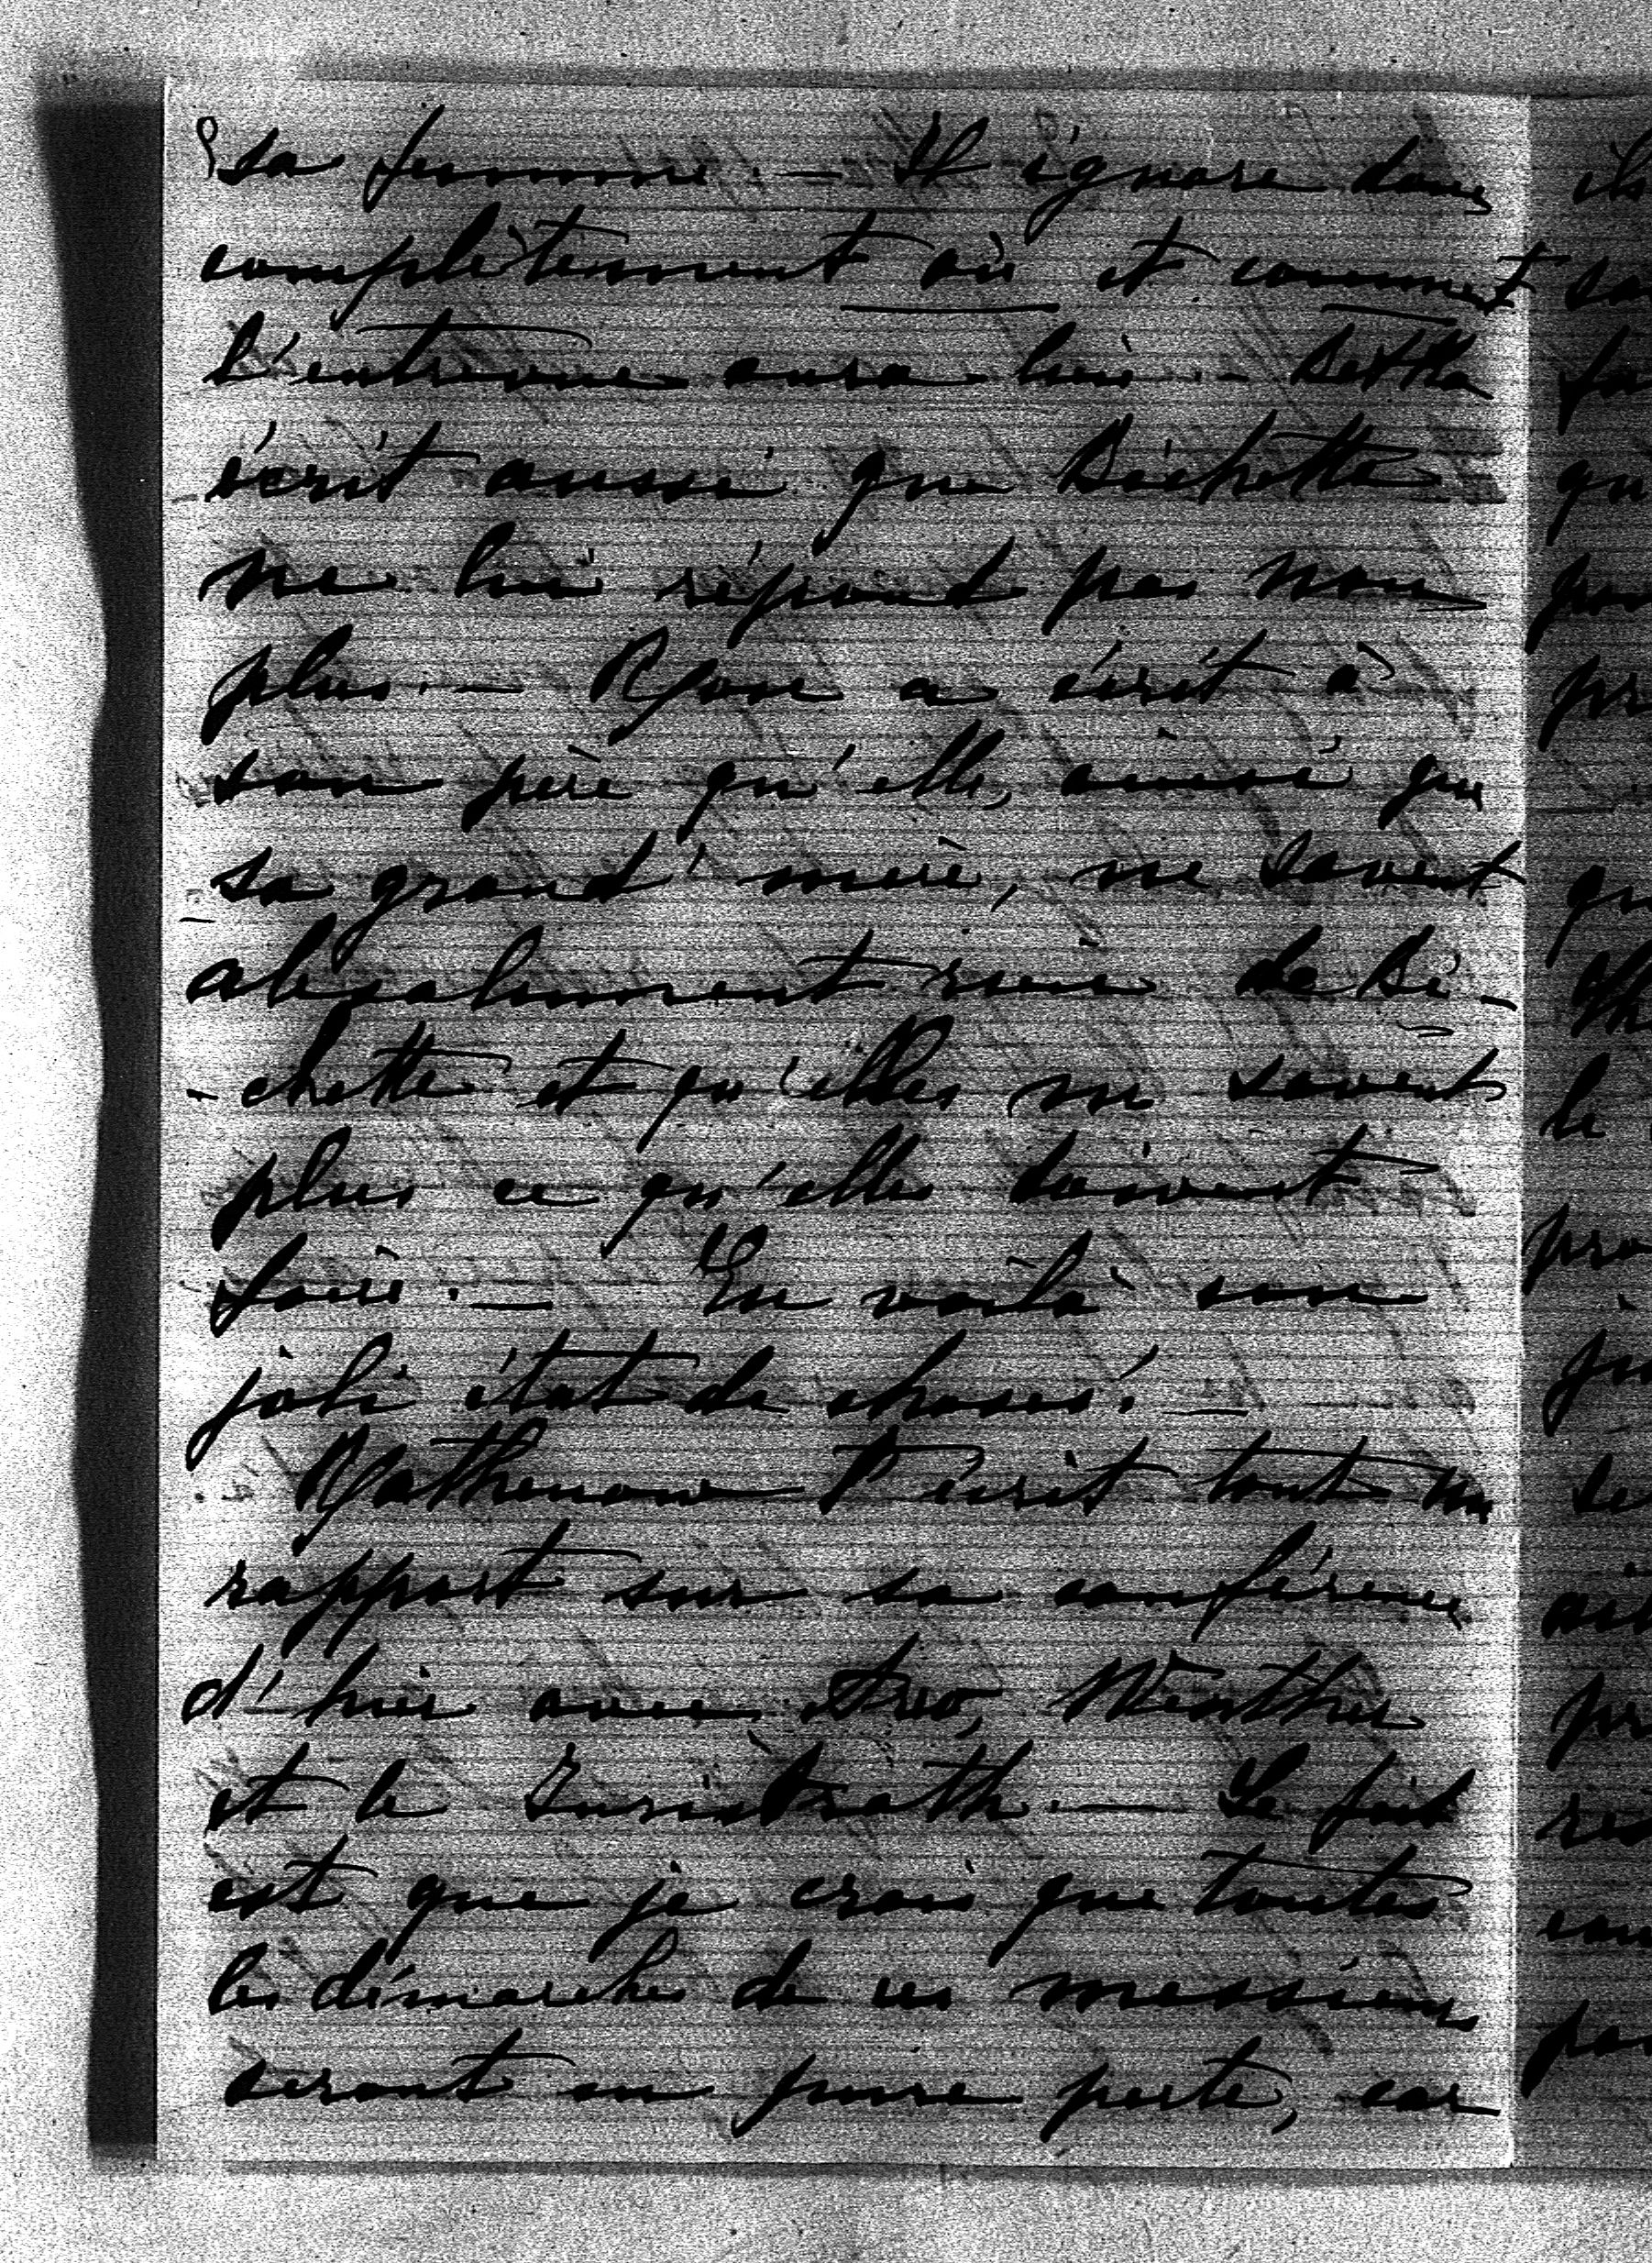 sa femme. — Il ignore donc
complètement où et comment
l'entrevue aura lieu. — Bertha
écrit aussi que Bichette
ne lui répond pas non
plus. — a écrit à
son père qu'elle, ainsi que
sa grand'mère, ne savent
absolument rien de Bi-
-chette et qu'elles ne savent
plus ce qu'elles doivent
faire. — En voilà un
joli état de choses! —
Rathenow t'écrit tout un
rapport sur sa conférence
d'hier avec
et le Justizrath. — Le fait
est que je crois que toutes
les démarches de ces messieurs
seront en pure perte, car